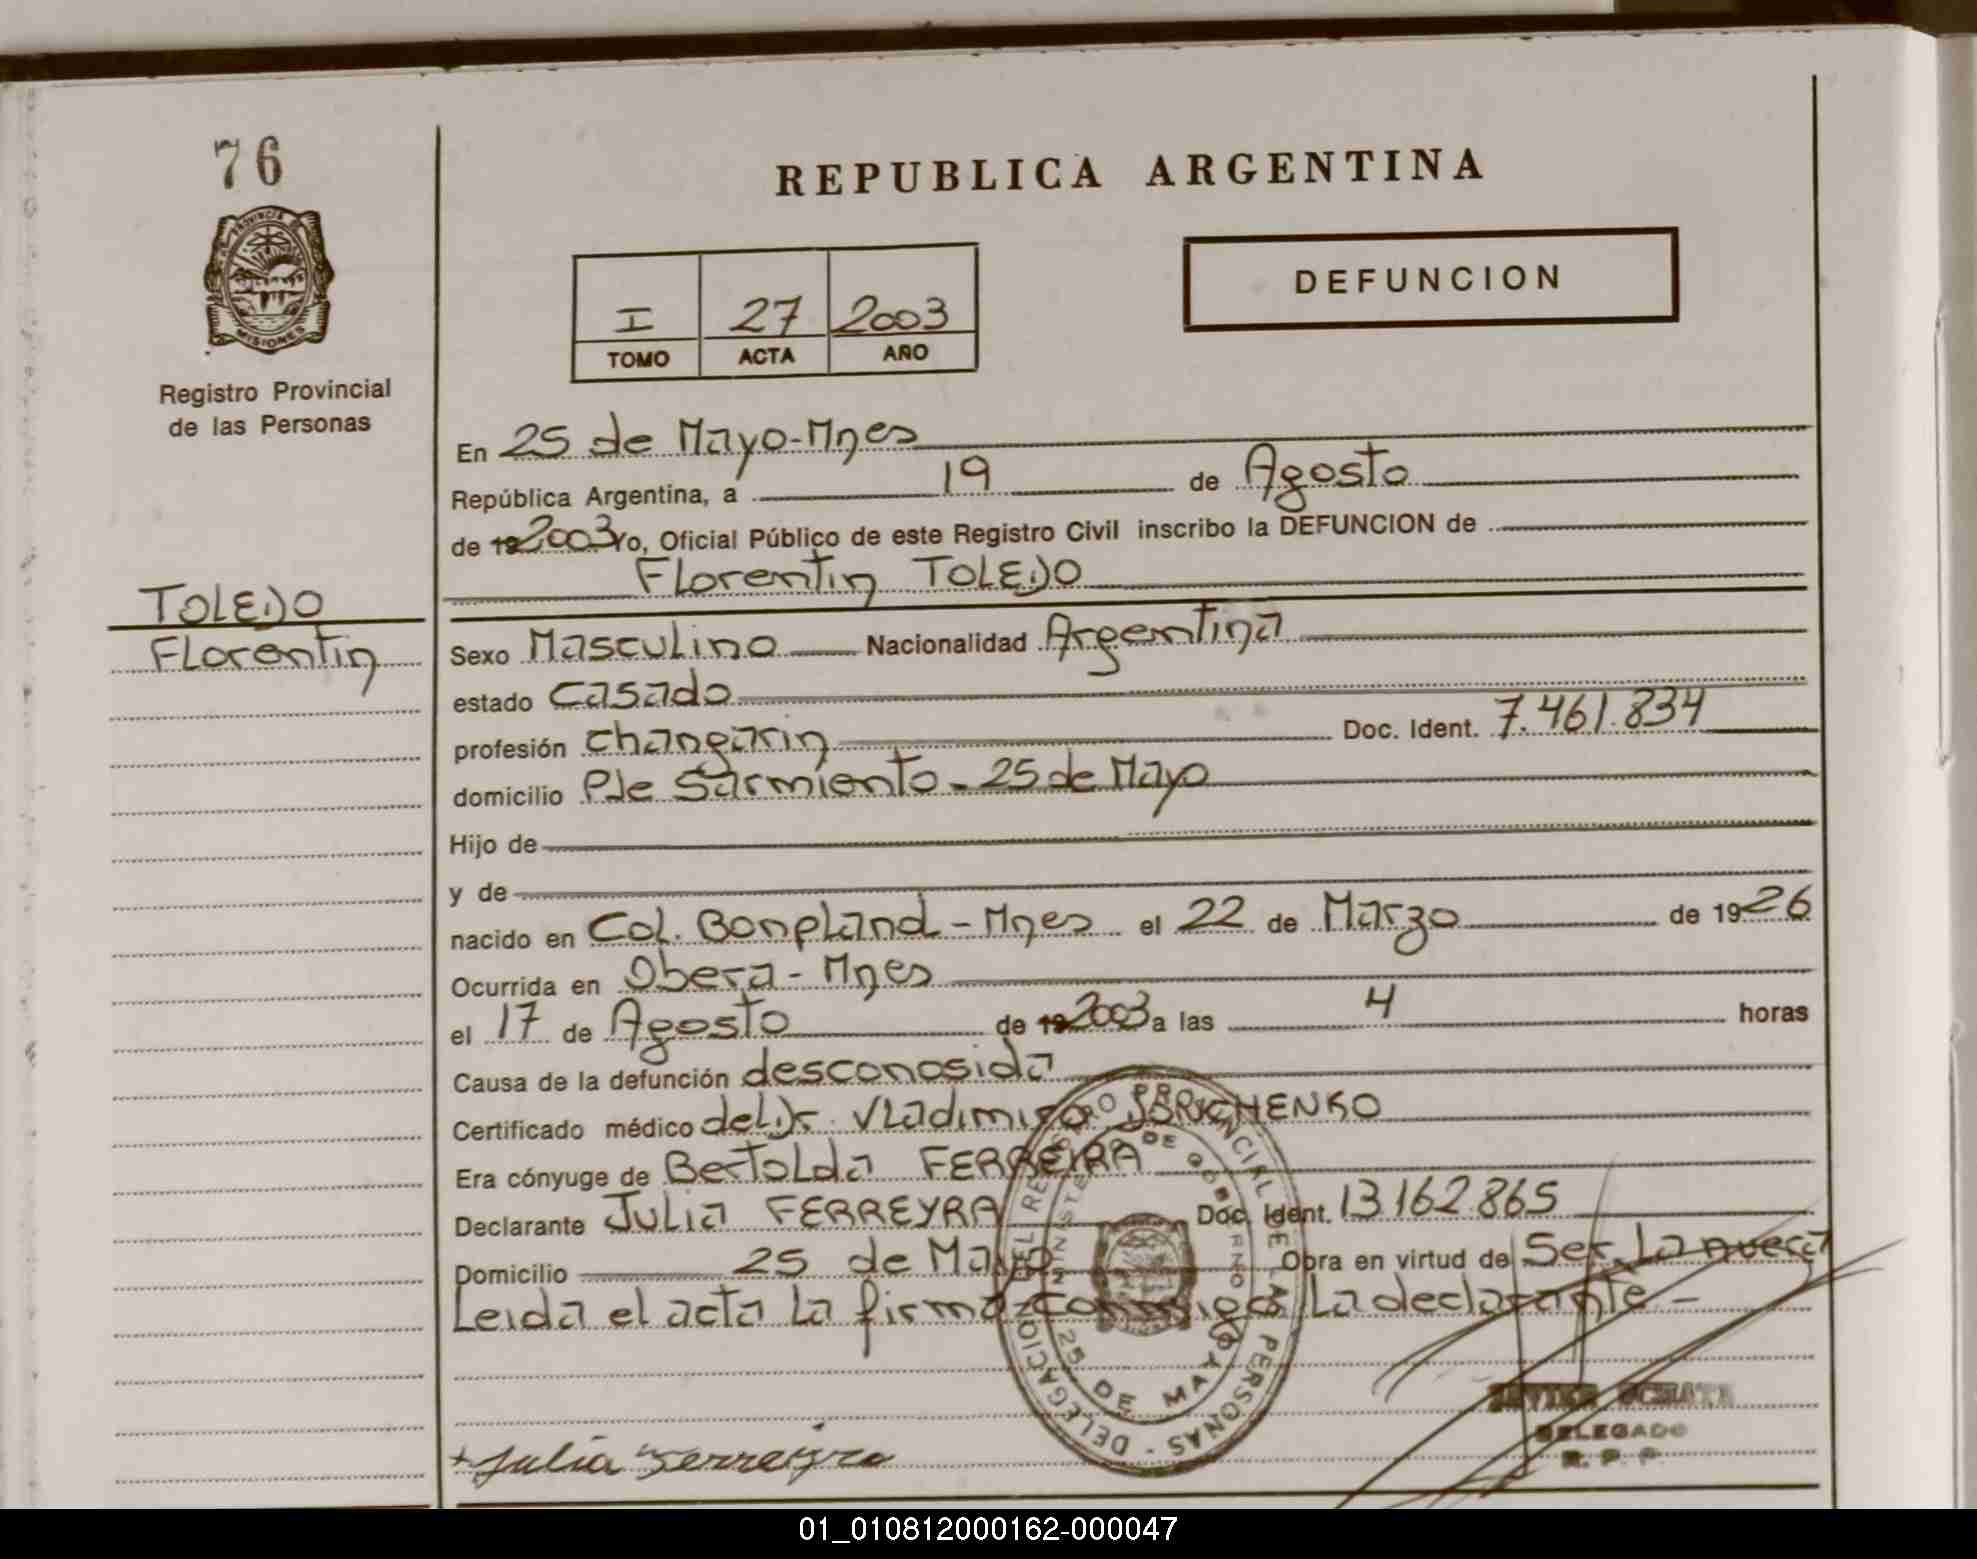 76
REPUBLICA ARGENTINA
PROVINCIA DE
MISIONES
Registro Provincial
de las Personas
I 27 2003
TOMO ACTA AÑO
DEFUNCION
En 25 de Mayo-Mnes
República Argentina, a 19 de Agosto
de 19 2003 Yo, Oficial Público de este Registro Civil inscribo la DEFUNCION de
Florentin TOLEDO
TOLEDO
Florentin
Sexo Masculino Nacionalidad Argentina
estado Casado
profesión changarin Doc. Ident. 7.461.834
domicilio Pje Sarmiento - 25 de Mayo
Hijo de
y de
nacido en Col. Bonpland - Mnes el 22 de Marzo de 1926
Ocurrida en Obera - Mnes
el 17 de Agosto de 19 2003 a las 4 horas
Causa de la defunción desconosida
Certificado médico del Dr. Vladimiro
Era cónyuge de Bertolda FERREIRA
Declarante Julia FERREYRA Doc. Ident. 13162.865
Domicilio 25 de Mayo Obra en virtud de Ser La nuera
Leida el acta La firma conmigo La declarante -
REGISTRO PROVINCIAL DE LAS PERSONAS - DELEGACION
MINISTERIO DE GOBIERNO
25 DE MAYO
DELEGADO
R. P. P.
Julia Ferreyra
01_010812000162-000047